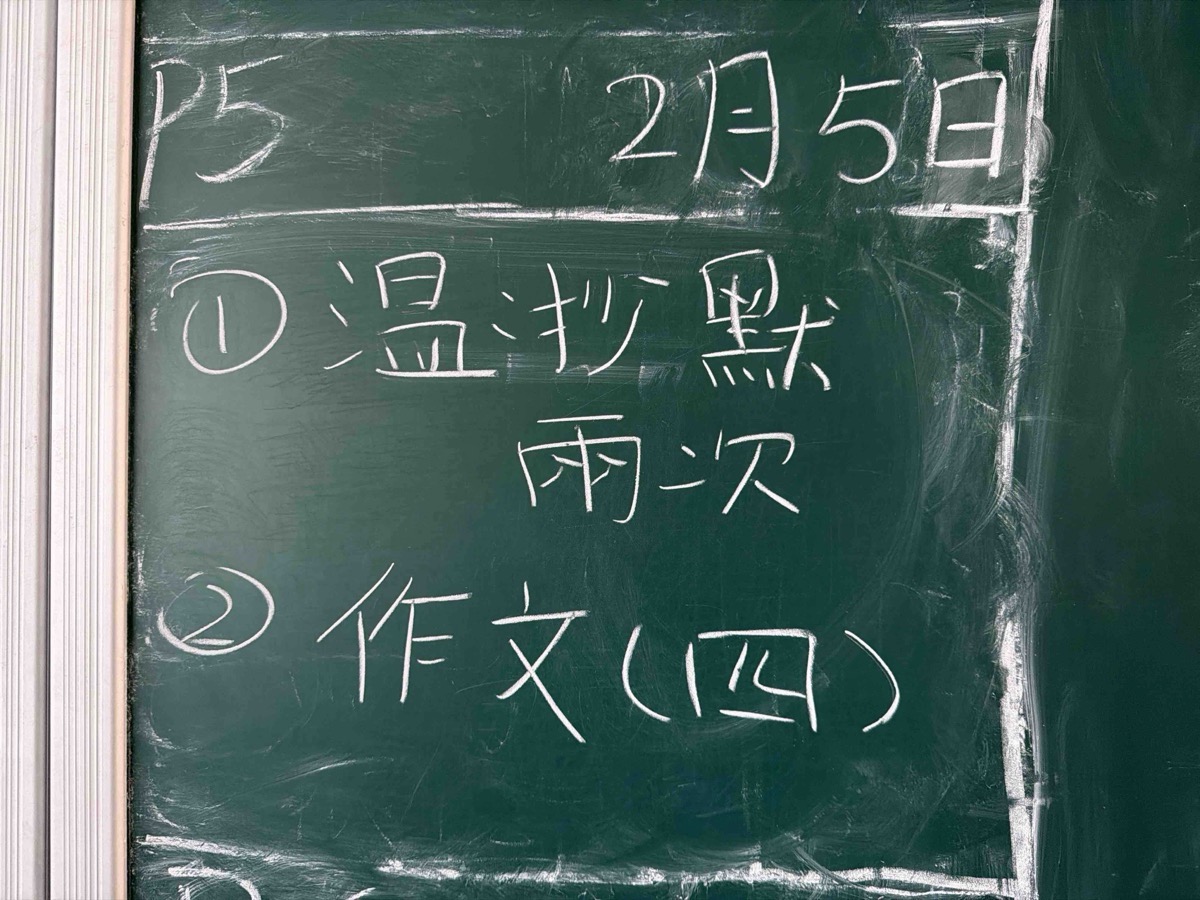 P5 2月5日
① 温抄默
兩次
② 作文(四)